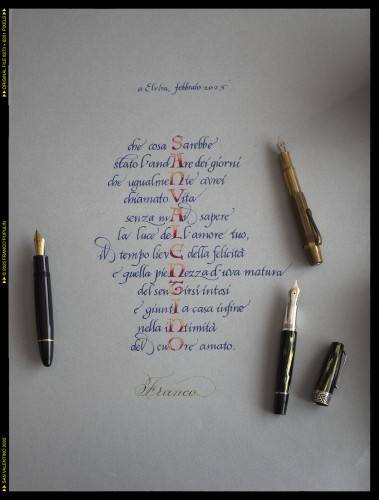 a Elvira, febbraio 2025
che cosa Sarebbe
stato l'andAre dei giorni
che ugualmeNte avrei
chiamato Vita
senza mAi sapere
la luce deL l'amore tuo,
il tempo liEve della felicità
e quella pieNezza d'uva matura
del senTirsi intesi
e giuntI a casa infine
nella iNtimità
del cuOre amato.
Franco
SAN VALENTINO 2025
© 2025 FRANCO PUPULIN
ORIGINAL FILE PIXELS